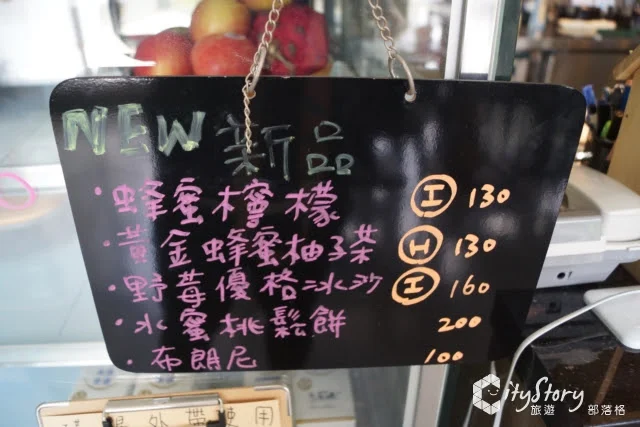 NEW 新品
·蜂蜜檸檬 I 130
·黃金蜂蜜柚子茶 H 130
·野莓優格冰沙 I 160
·水蜜桃鬆餅 200
·布朗尼 100
外帶使用
CityStory
旅遊 部落格